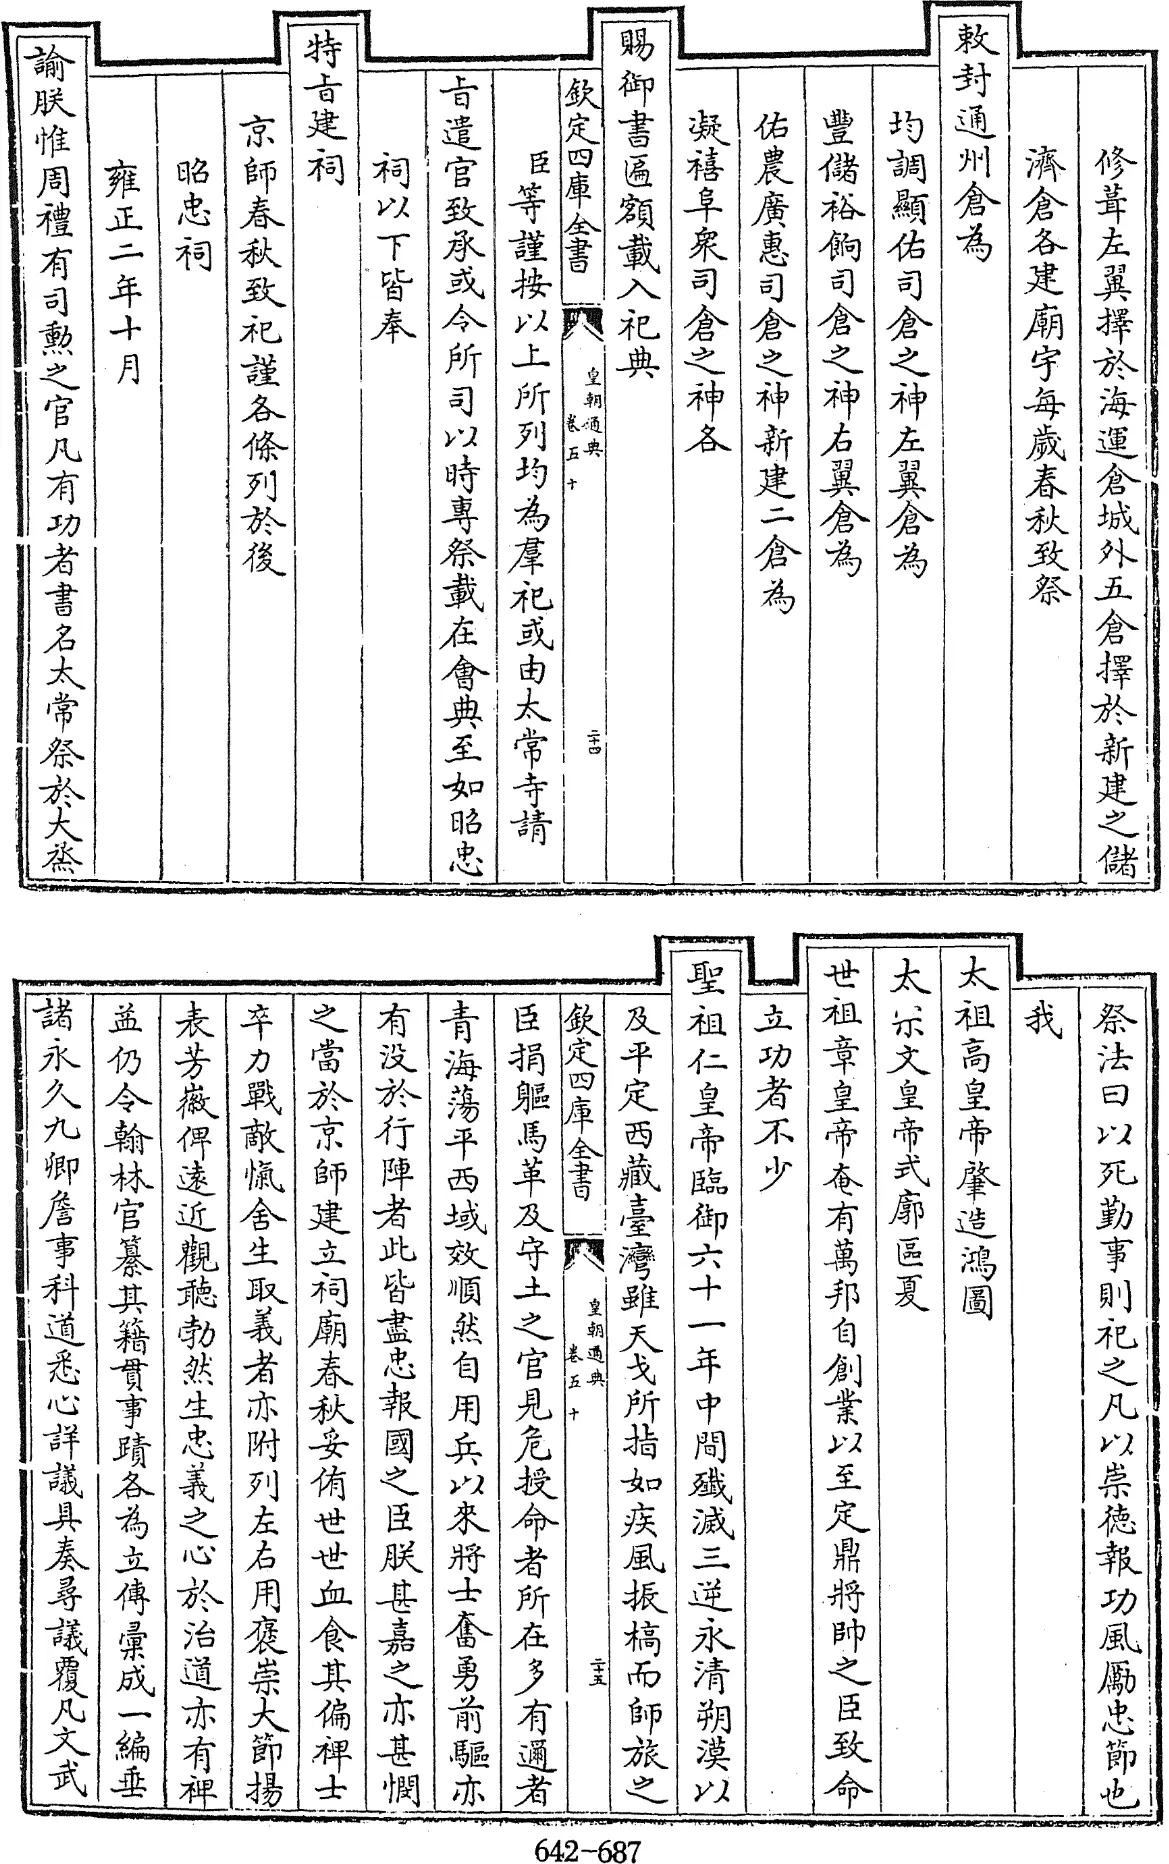 修葺左翼擇於海運倉城外五倉擇於新建之儲
濟倉各建廟宇每歲春秋致祭
敕封通州倉為
均調顯佑司倉之神左翼倉為
豐儲裕餉司倉之神右翼倉為
佑農廣惠司倉之神新建二倉為
凝禧阜衆司倉之神各
賜御書匾額載入祀典
欽定四庫全書
皇朝通典
卷五十
二十四
臣等謹按以上所列均為羣祀或由太常寺請
旨遣官致承或令所司以時專祭載在會典至如昭忠
祠以下皆奉
特旨建祠
京師春秋致祀謹各條列於後
昭忠祠
雍正二年十月
諭朕惟周禮有司勲之官凡有功者書名太常祭於大烝
祭法曰以死勤事則祀之凡以崇徳報功風厲忠節也
我
太祖高皇帝肇造鴻圖
太宗文皇帝式廓區夏
世祖章皇帝奄有萬邦自創業以至定鼎將帥之臣致命
立功者不少
聖祖仁皇帝臨御六十一年中間殲滅三逆永清朔漠以
及平定西藏臺灣雖天戈所指如疾風振槁而師旅之
欽定四庫全書
皇朝通典
卷五十
二十五
臣捐軀馬革及守土之官見危授命者所在多有邇者
青海蕩平西域效順然自用兵以來將士奮勇前驅亦
有没於行陣者此皆盡忠報國之臣朕甚嘉之亦甚憫
之當於京師建立祠廟春秋妥侑世世血食其偏裨士
卒力戰敵愾舍生取義者亦附列左右用襃崇大節揚
表芳徽俾遠近觀聽勃然生忠義之心於治道亦有裨
益仍令翰林官纂其籍貫事蹟各為立傳彚成一編垂
諸永久九卿詹事科道悉心詳議具奏尋議覆凡文武
642-687